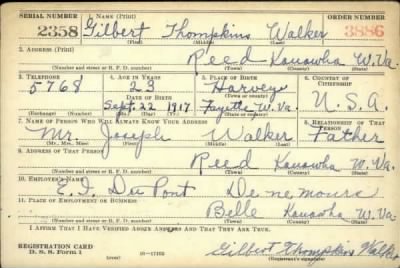 SERIAL NUMBER 1. Name (Print) ORDER NUMBER
2358 Gilbert Thompkins Walker 3886
(First) (Middle) (Last)
2. Address (Print)
Reed Kanawha W. Va.
(Number and street or R. F. D. number) (Town) (County) (State)
3. Telephone 4. Age in Years 5. Place of Birth 6. Country of Citizenship
5768 23 Harvey
Date of Birth (Town or county)
Sept. 22 1917 Fayette W. Va. U.S.A.
(Exchange) (Number) (Mo.) (Day) (Yr.) (State or country)
7. Name of Person Who Will Always Know Your Address 8. Relationship of That Person
Mr. Joseph Walker Father
(Mr., Mrs., Miss) (First) (Middle) (Last)
9. Address of That Person
Reed Kanawha W. Va.
(Number and street or R. F. D. number) (Town) (County) (State)
10. Employer's Name
E. I. Du Pont De nemours
11. Place of Employment or Business
Belle Kanawha W. Va
(Number and street or R. F. D. number) (Town) (County) (State)
I Affirm That I Have Verified Above Answers and That They Are True.
REGISTRATION CARD
D. S. S. Form 1 (over) Gilbert Thompkins Walker